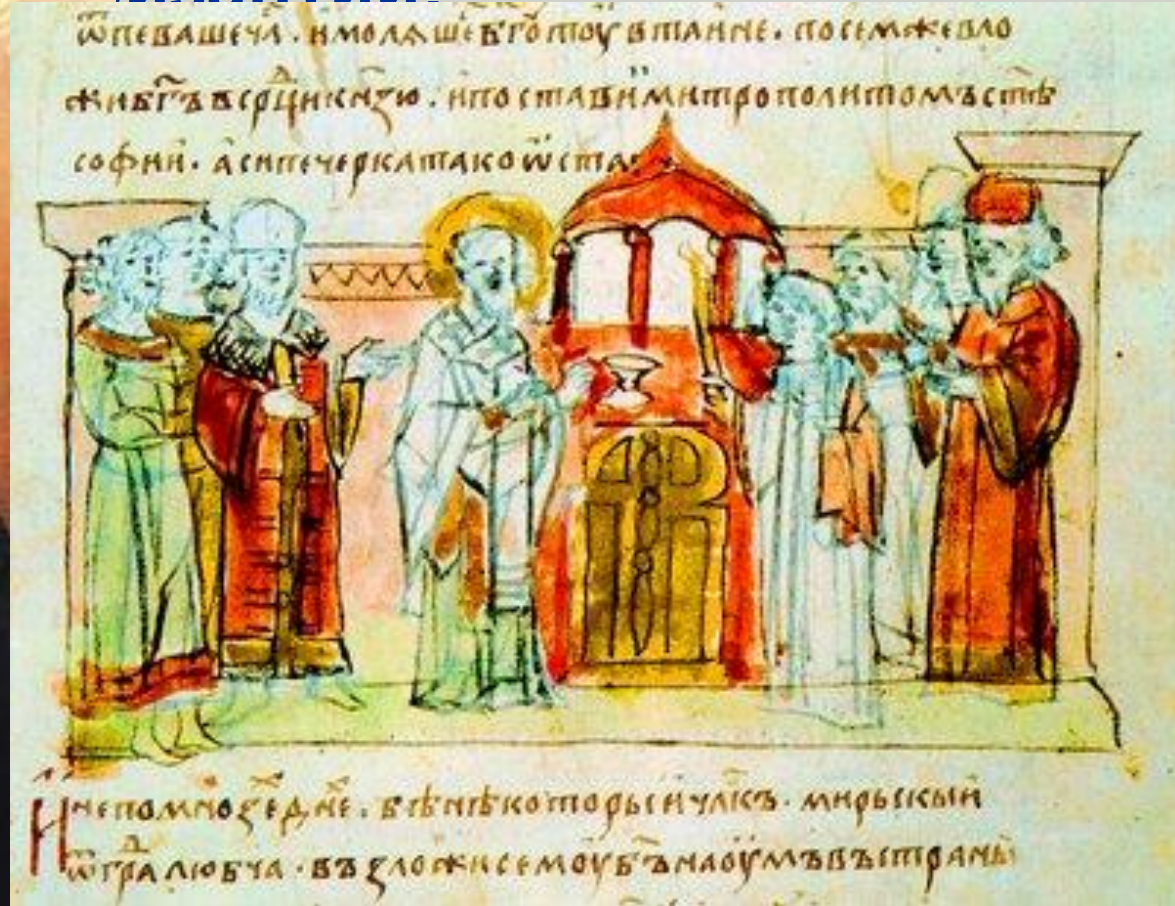 ѿпеваше ча . и молѧше бг҃ототѹ в таине . посем же вло
жи бг҃ъ в ср҃ци кн҃зю . и постави и митрополитомъ ст҃ѣ
софии . а си печерка тако ѡста
И не по мнозе дн҃е . бѣ нѣкоторыи чл҃къ . мирьскыи
ѿ гра любча . въzложи семоу б҃ъ на оумъ въ страны